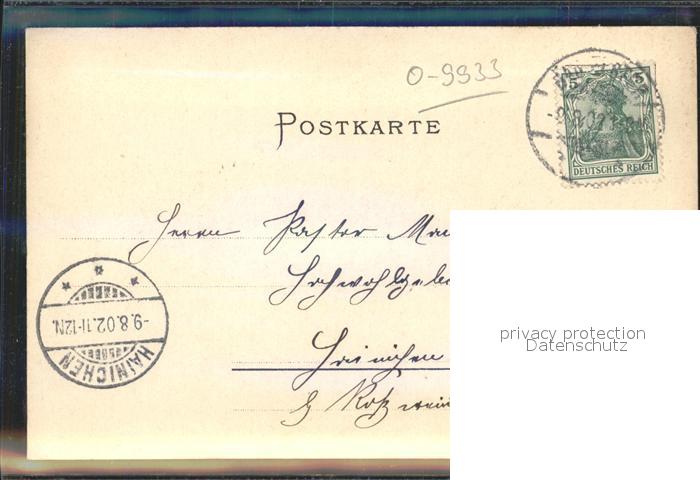 O-9933
POSTKARTE
5 5
DEUTSCHES REICH
Herrn Pastor
Hochwohlgeb
Hainichen
-9.8.02.11-12N.
HAINICHEN
privacy protection
Datenschutz